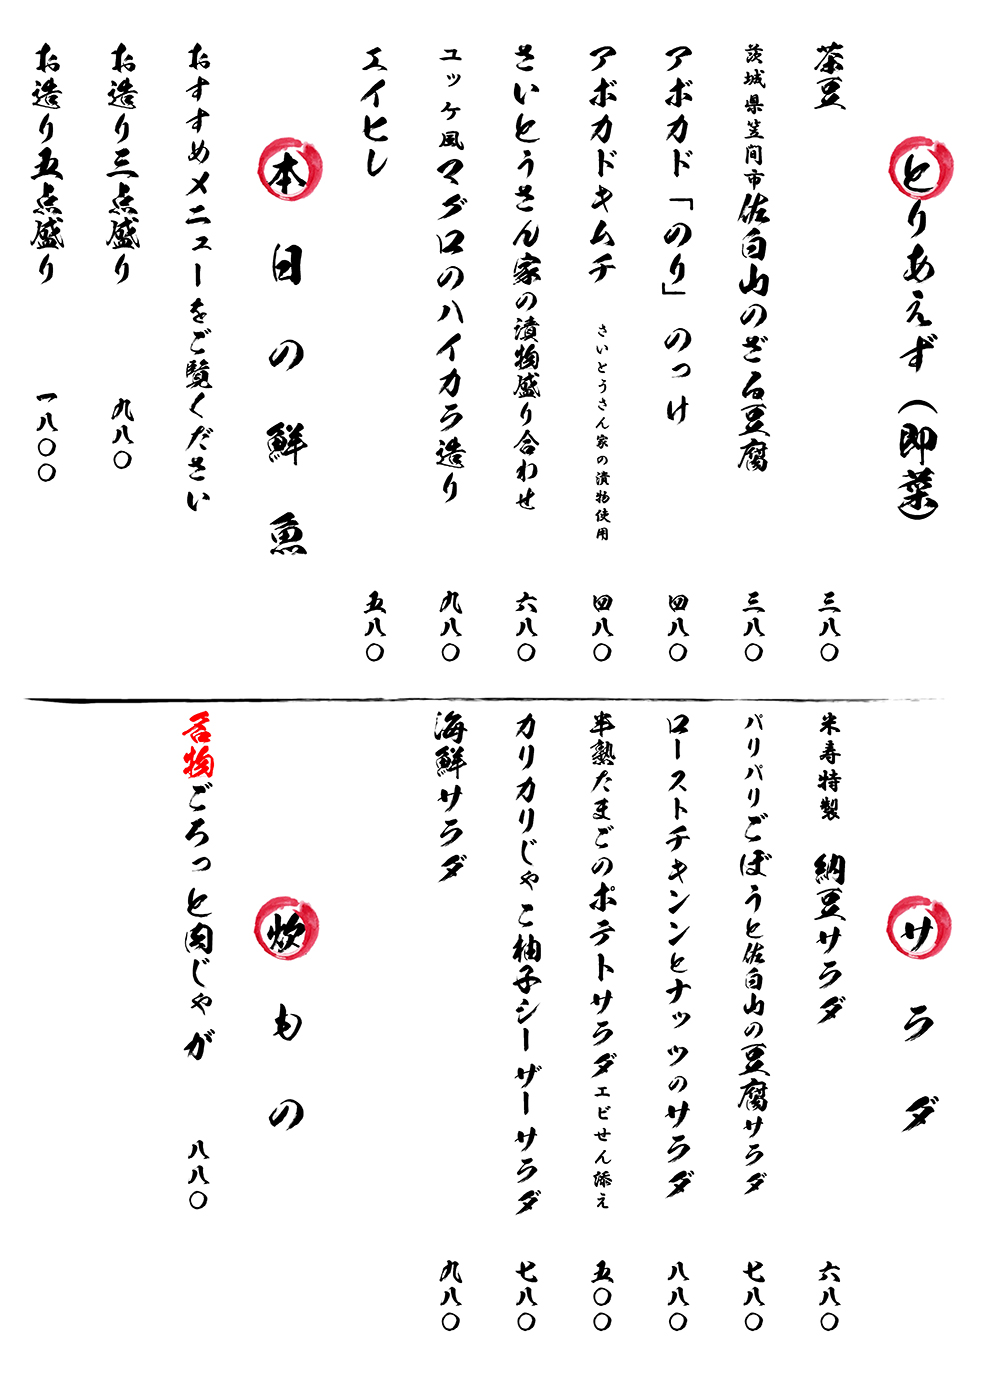 とりあえず（即菜）
茶豆 三八〇
茨城県笠間市佐白山のざる豆腐 三八〇
アボカド「のり」のっけ 四八〇
アボカドキムチ さいとうさん家の漬物使用 四八〇
さいとうさん家の漬物盛り合わせ 六八〇
ユッケ風マグロのハイカラ造り 九八〇
エイヒレ 五八〇
本日の鮮魚
おすすめメニューをご覧ください
お造り三点盛り 九八〇
お造り五点盛り 一八〇〇
サラダ
米寿特製 納豆サラダ 六八〇
パリパリごぼうと佐白山の豆腐サラダ 七八〇
ローストチキンンとナッツのサラダ 八八〇
半熟たまごのポテトサラダエビせん添え 五〇〇
カリカリじゃこ柚子シーザーサラダ 七八〇
海鮮サラダ 九八〇
炊もの
名物ごろっと肉じゃが 八八〇